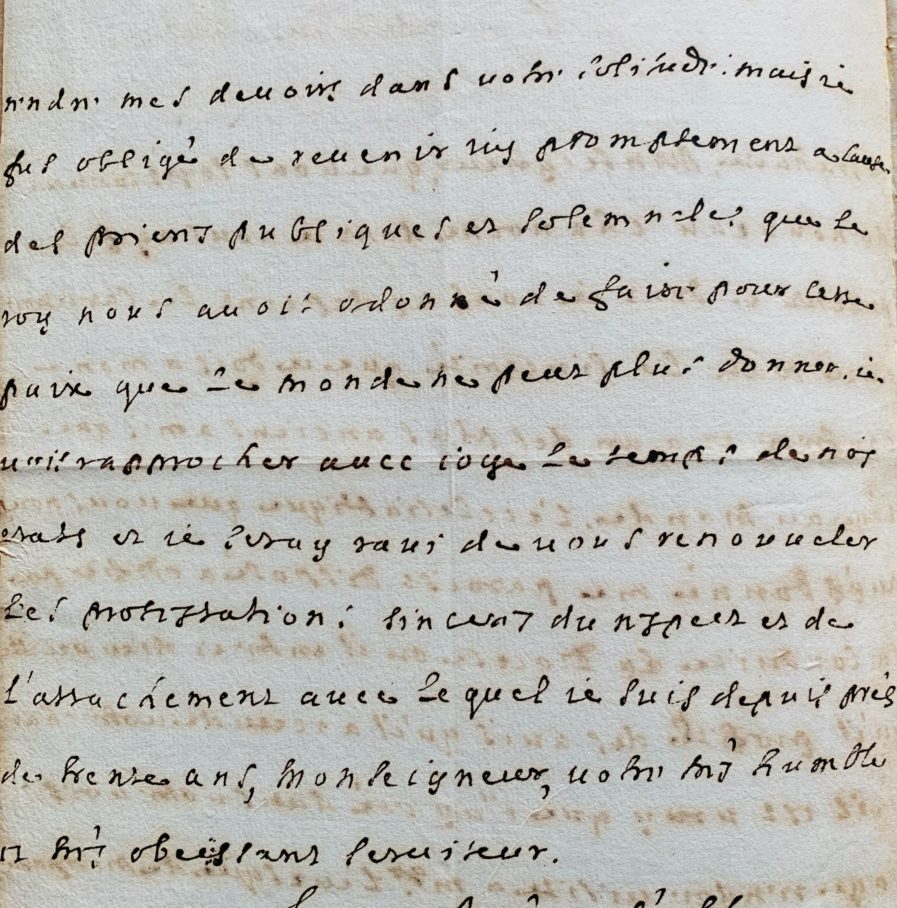 rendre mes devoirs dans votre solitude. mais ie
fus obligé de revenir icy promptement a cause
des prieres publiques et solemneles que le
roy nous avoit odonné de faire pour cette
paix que le monde ne peut plus donner. ie
vois rapprocher avec ioye le temps de nos
etats et ie seray ravi de vous renouveler
les protestations sinceres du respect et de
l'attachement avec le quel ie suis depuis près
de trente ans, Monseigneur, votre trés humble
et trés obeissant serviteur.